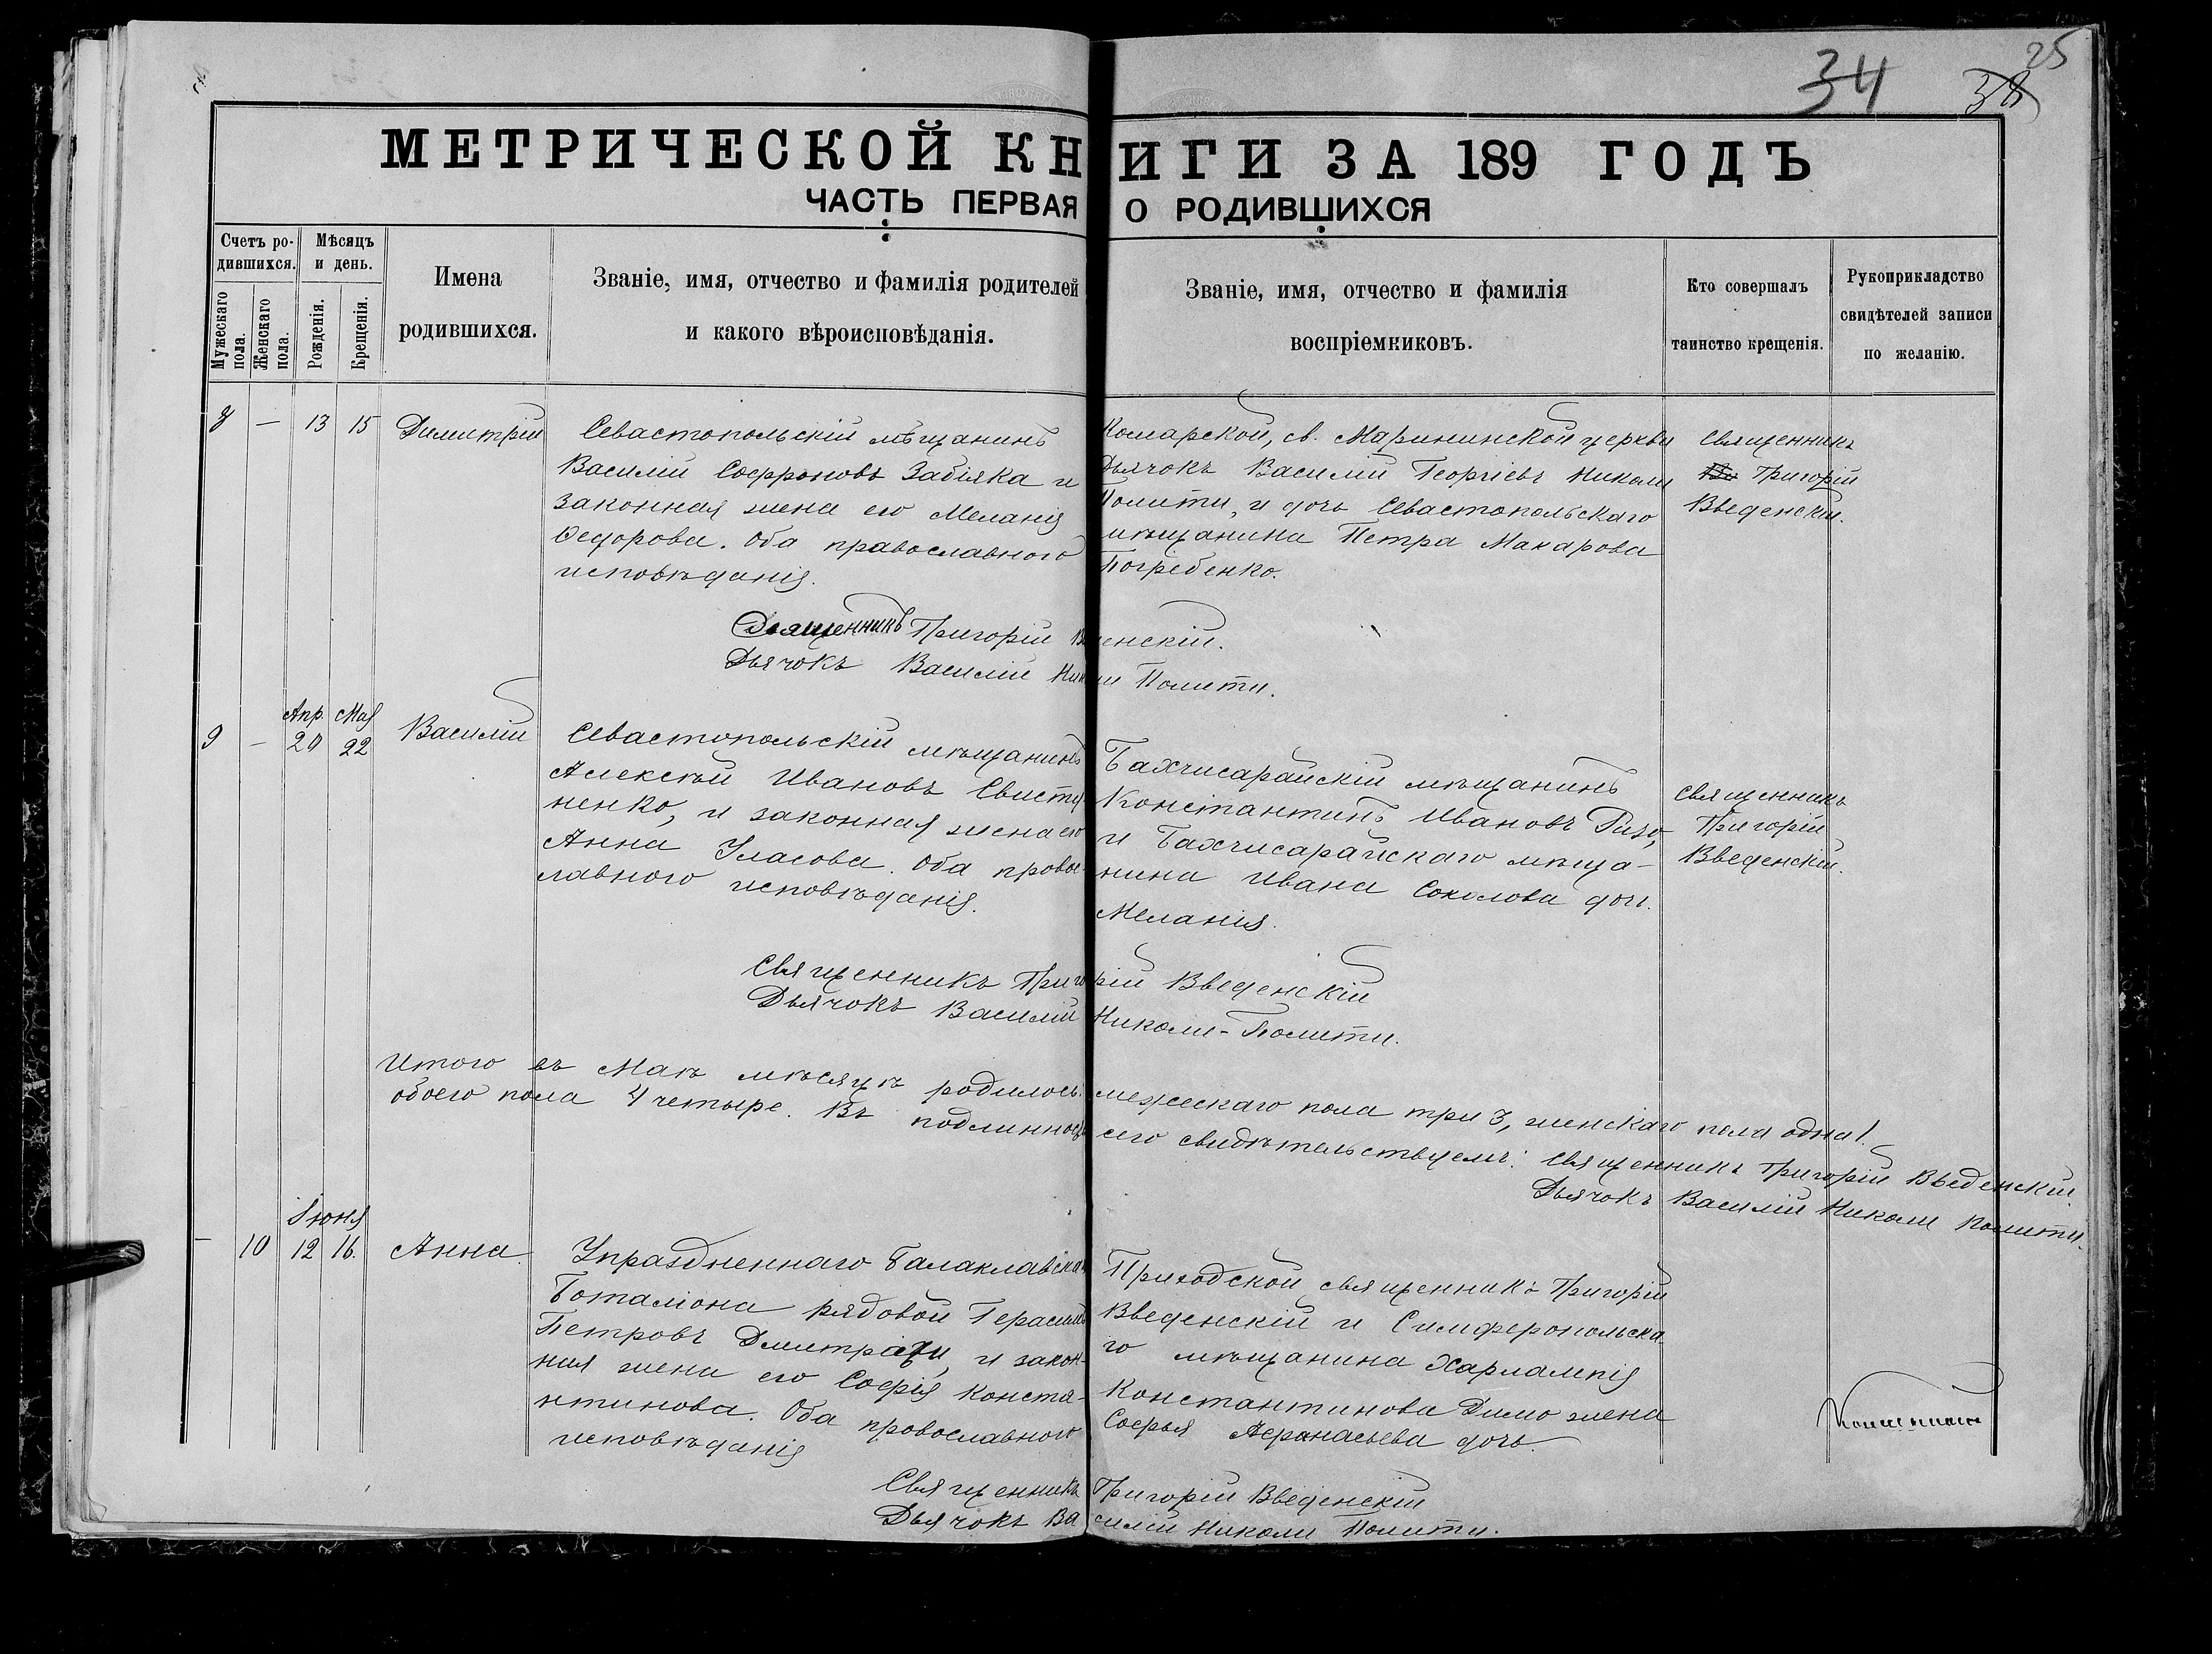 34 38 25
МЕТРИЧЕСКОЙ КНИГИ ЗА 189 ГОДЪ
ЧАСТЬ ПЕРВАЯ О РОДИВШИХСЯ
Счетъ ро-
дившихся.
Мужескаго
пола.
Женскаго
пола.
Мѣсяцъ
и день.
Рожденія.
Крещенія.
Имена
родившихся.
Званіе, имя, отчество и фамилія родителей
и какого вѣроисповѣданія.
Званіе, имя, отчество и фамилія
воспріемниковъ.
Кто совершалъ
таинство крещенія.
Рукоприкладство
свидѣтелей записи
по желанію.
8 — 13 15 Димитрій
Севастопольскій мѣщанинъ
Василій Софроновъ Забіяка и
законная жена его Меланія
Ѳедорова. Оба православнаго
исповѣданія.
Комарской, св. Марининской церкви
Дьячокъ Василій Георгіевъ Николи
Полити, и дочь Севастопольскаго
мѣщанина Петра Макарова
Погребенко.
Священникъ
Григорій
Введенскій.
Священникъ Григорій Введенскій.
Дьячокъ Василій Николи Полити.
Апр. Мая
9 — 20 22 Василій
Севастопольскій мѣщанинъ
Алексѣй Ивановъ Свисту-
ненко, и законная жена его
Анна Уласова. Оба правос-
лавного исповѣданія.
Бахчисарайскій мѣщанинъ
Константинъ Ивановъ Ризо,
и Бахчисарайскаго мѣща-
нина Ивана Соколова доч.
Меланія.
Священникъ
Григорій
Введенскій.
Священникъ Григорій Введенскій
Дьячокъ Василій Николи-Полити.
Итого въ Маѣ мѣсяцѣ родилось: мужескаго пола три 3, женскаго пола одна 1.
обоего пола 4 четыре. Въ подлинности сего свидѣтельствуемъ: Священникъ Григорій Введенскій.
Дьячокъ Василій Николи Полити.
Іюня
— 10 12 16. Анна.
Упраздненнаго Балаклавскаго
Боталіона рядовой Герасимъ
Петровъ Дмитраки, и закон-
ная жена его Софія Конста-
нтинова. Оба провославного
исповѣданія
Приходской священникъ Григорій
Введенскій и Симферопольска-
го мѣщанина Харлампія
Константинова Димо жена
Софья Афанасьева дочь.
Священникъ Григорій Введенскій
Дьячокъ Василій Николи Полити.